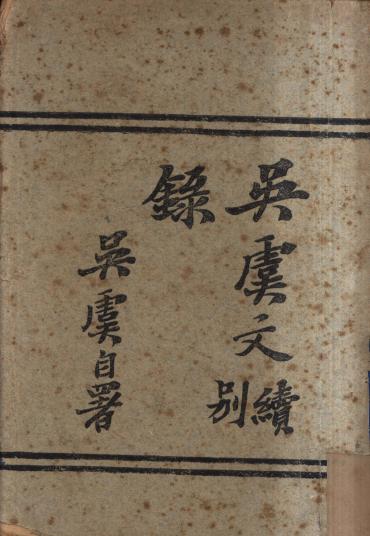 吳虞文續別
錄
吳虞自署